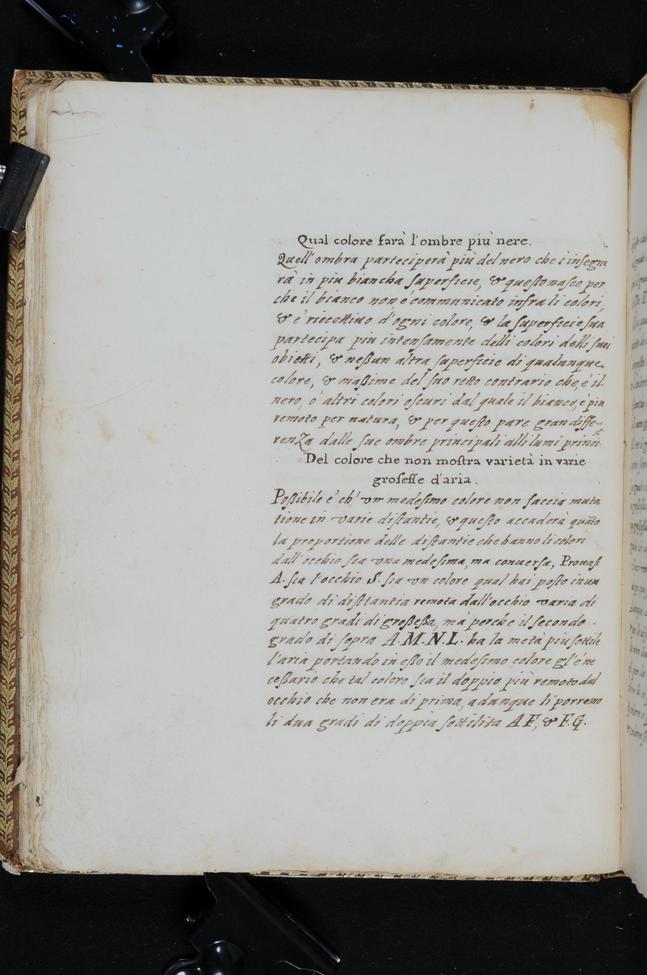 Qual colore farà l'ombre più nere.
Quell'ombra parteciperà più del nero che s'insegne
rà in piu biancha superficie, & questo nasce per
che il bianco non è communicato infra li colori,
& è ricettivo d'ogni colore, & la superficie sua
partecipa piu intensamente delli colori delli suoi
obietti, & neßun altra superficie di qualunque
colore, & maßime del suo retto contrario che, è il
nero, o altri colori oscuri dal quale il bianco, e più
remoto per natura, & per questo pare gran diffe-
renza dalle sue ombre principali alli lumi princi:
Del colore che non mostra varietà in varie
grosesse d'aria.
Poßibile è ch' vn medesimo colore non faccia muta
tione in varie distantie, & questo accaderà quãto
la proportione delle distantie che hanno li colori
dall'occhio sia vna medesima, ma conversa, Provasi
A. sia l'occhio S. sia vn colore qual hai posto in un
grado di distantia remota dall'occhio varia di
quatro gradi di großeßa, mà perche il secondo
grado di sopra A.M.N.L. ha la metà piu sottile
l'aria portando in eßo il medesimo colore gl'è ne
ceßario che tal coloro sia il doppio più remoto dal
occhio che non era di prima, adunque li porremo
li dua gradi di doppia sottilita A F, & F.G.